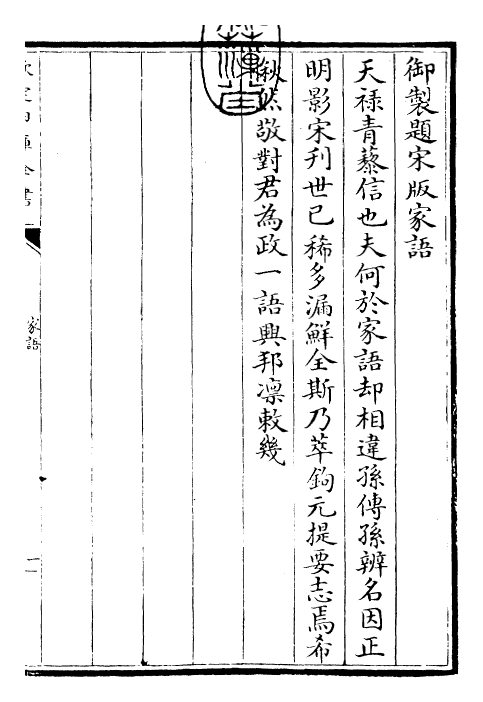 御製題宋版家語
天禄青藜信也夫何於家語却相違孫傳孫辨名因正
明影宋刋世已稀多漏鮮全斯乃萃鉤元提要志焉希
愀然敬對君為政一語興邦凛敕幾
欽定四庫全書
家語